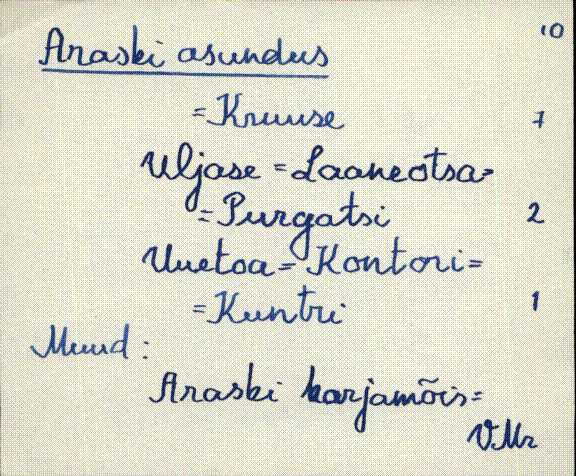 10
Araski asundus
=Kruuse 7
Uljase =Laaneotsa=
=Purgatsi 2
Uuetoa= Kontori=
=Kuntri 1
Muud:
Araski karjamõis=
VMr